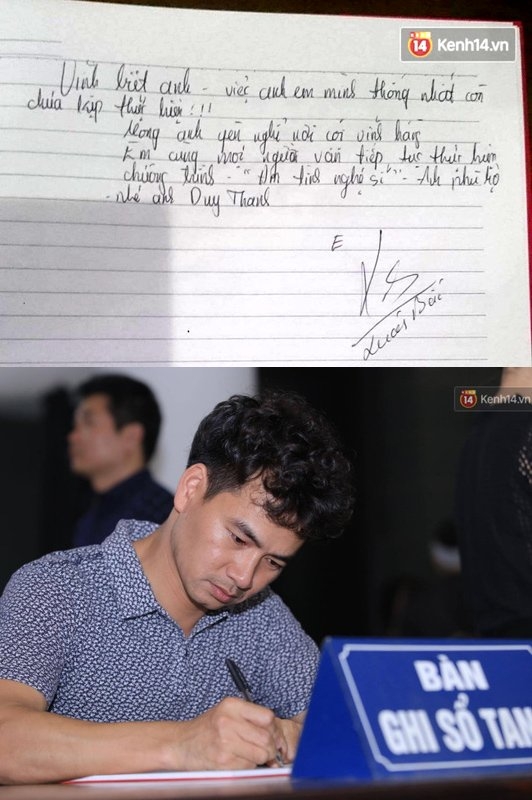 14 Kenh14.vn
Vĩnh biệt anh - việc anh em mình thống nhất còn
chưa kịp thực hiện!!!
Mong anh yên nghỉ nơi cõi vĩnh hằng
Em cùng mọi người vẫn tiếp tục thực hiện
chương trình - "Ân tình nghệ sĩ" - Anh phù hộ
nhé anh Duy Thanh
E
Xuân Bắc
14 Kenh14.vn
BÀN
GHI SỔ TAN